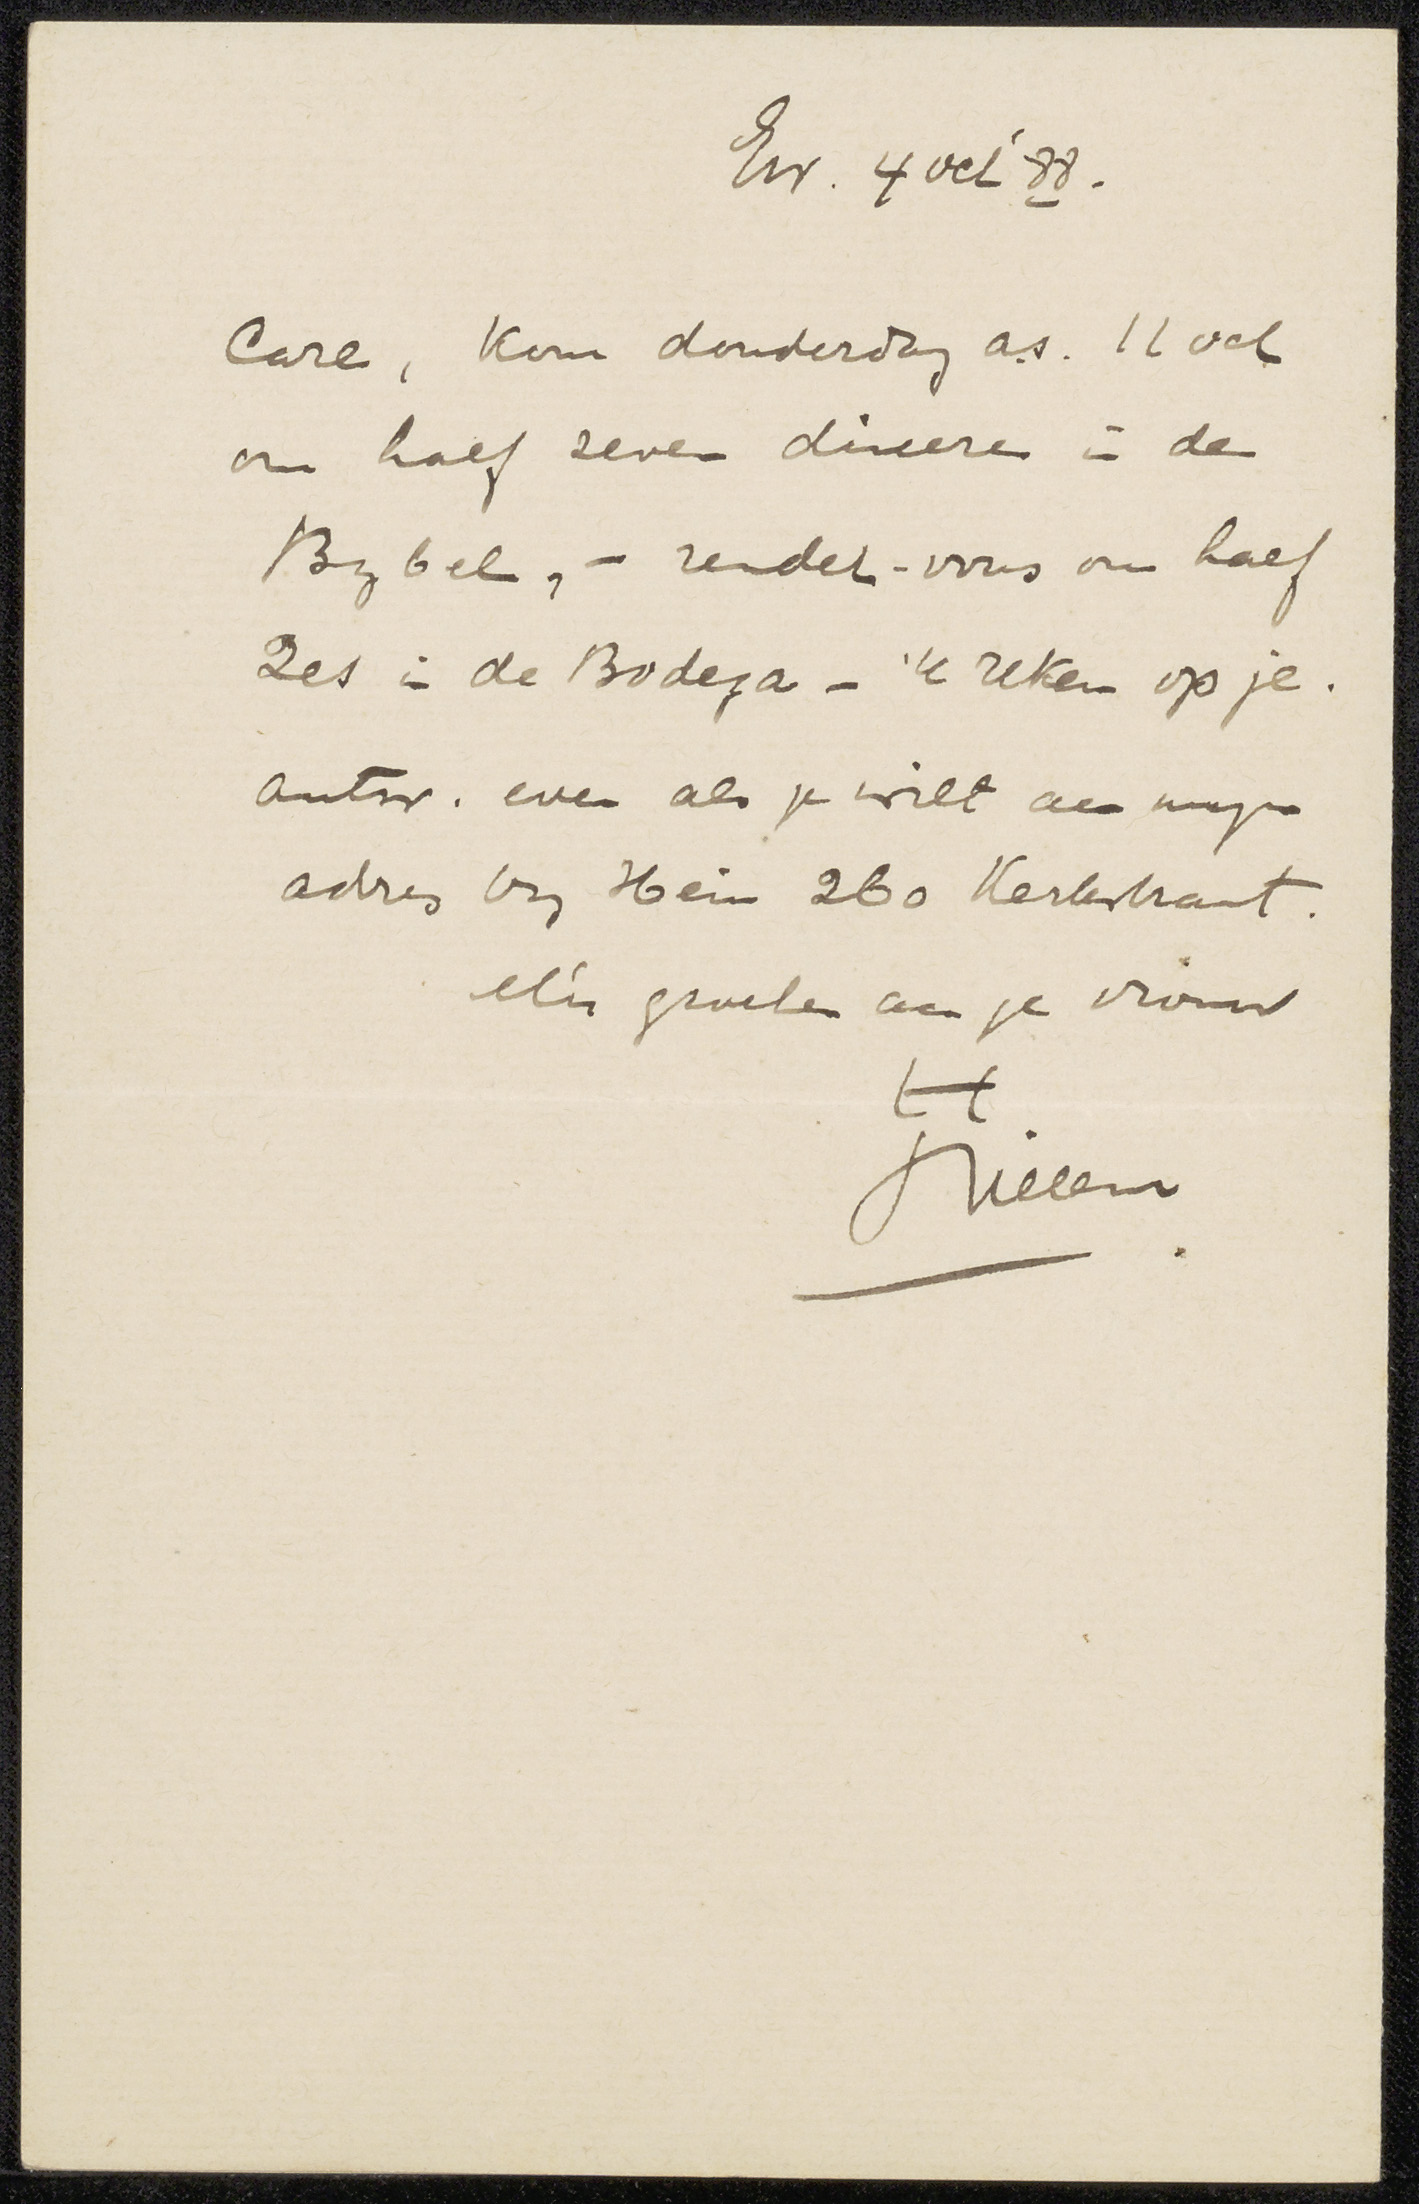 Ew. 4 oct '88.
Carel, kom donderdag a.s. 11 oct
om half zeven dineeren in de
Bijbel, – rendez-vous om half
zes in de Bodega – 'k reken op je.
antw. even als je wilt aan mijn
adres bij Hein 260 Kerkstraat.
groeten aan je vrouw
tt
Willem